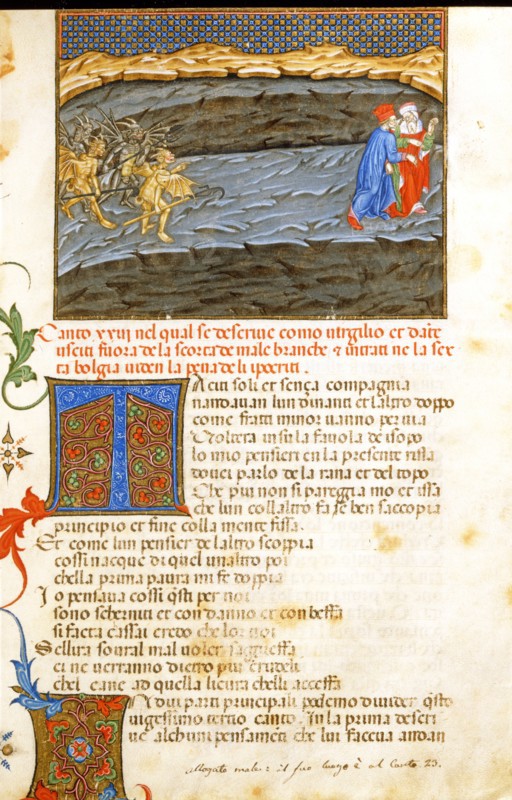 Canto xxiii nel qual se descrive como virgilio et date
usciti fuora de la scorta de male branche & intrati ne la ses
ta bolgia viden la pena de li ipocriti.
Taciti soli et sença compagnia
nandavan lun dinanti et laltro doppo
come frati minor vanno per via
Voltera in su la favola de isopo
lo mio pensier en la presente rissa
dovei parlo de la rana et del topo
Che piu non si pareggia mo et issa
che lun collaltro fa se ben saccopia
principio et fine colla mente fissa.
Et come lun pensier de laltro scoppia
cossi nacque di quel unaltro poi
chella prima paura mi fe doppia
Io pensava cossi qsti per noi
sono scherniti et con danno et con beffa
si facta cassai credo che lor noi
Sellira soural mal voler sagueffa
ei ne verranno dietro piu crudeli
chel cane ad quella lievra chelli acceffa
In dui parti principali podemo divider qsto
vigessimo tertio canto. In la prima descri
ve alchuni pensamenti che lui faceva andan
allogato male: il suo luogo è al Canto 23.